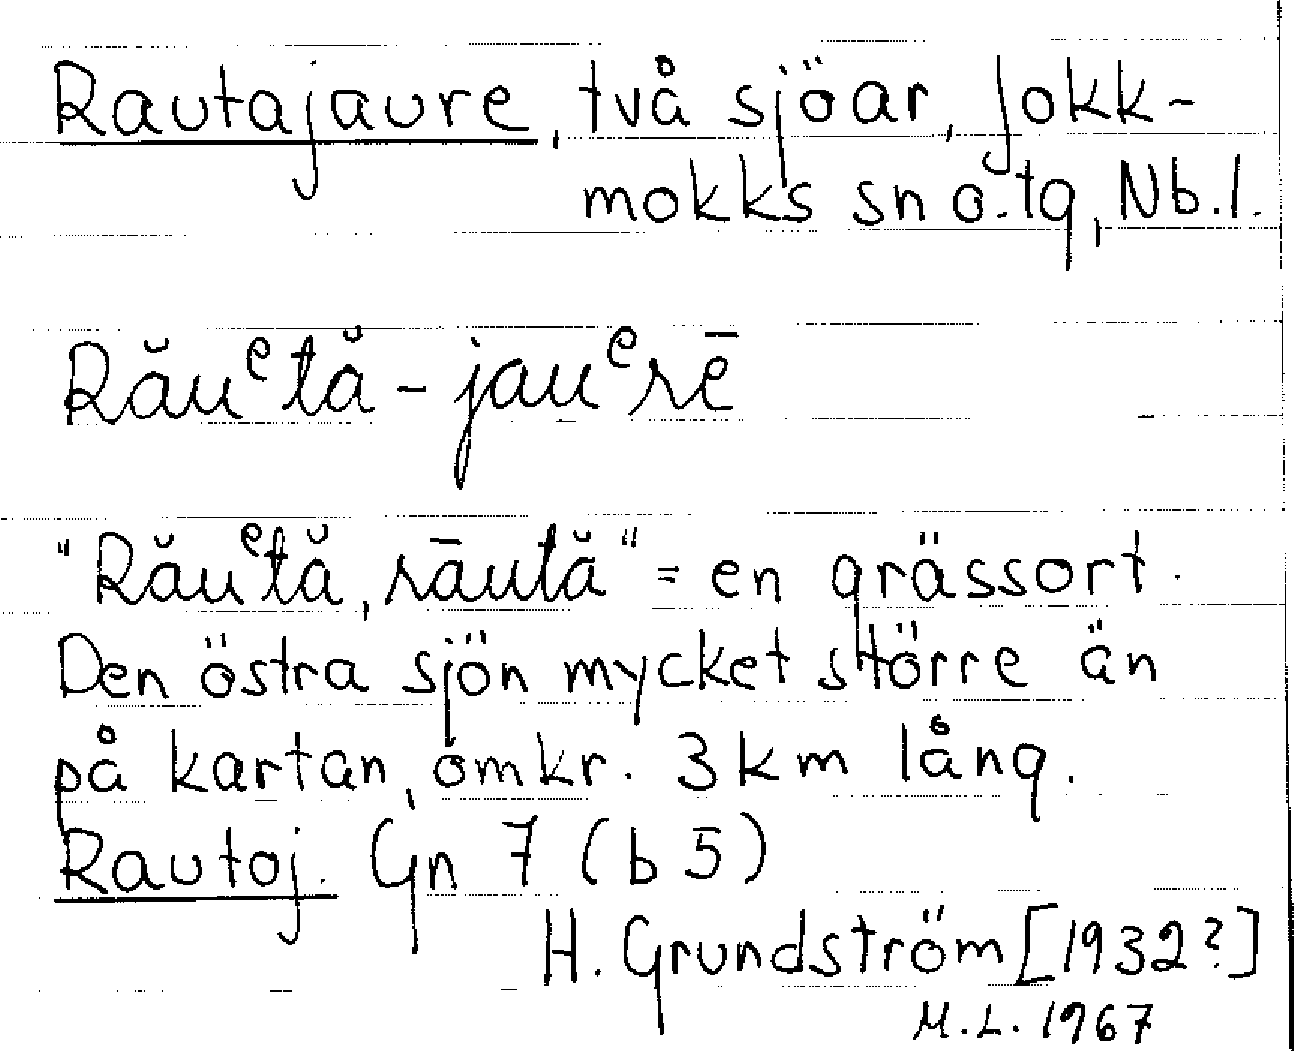 Rautajaure, två sjöar, Jokk-
mokks sn o. tg, Nb. l.
Răuᵉtă - jauᵉrē
"Răuᵉtă, rāută" = en grässort.
Den östra sjön mycket större än
på kartan, omkr. 3 km lång.
Rautoj. Gn 7 (b 5)
H. Grundström [1932?]
M.L. 1967